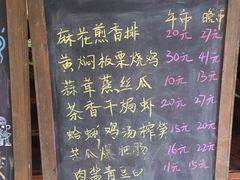 午市 晚市
麻花煎香排 20元 27元
黄焖板栗烧鸡 30元 41元
蒜茸蒸丝瓜 10元 13元
茶香干焗虾 20元 27元
蛤蜊鸡汤榨笋 15元 20元
苦瓜 肥肠 16元 22元
肉酱青豆 11元 15元